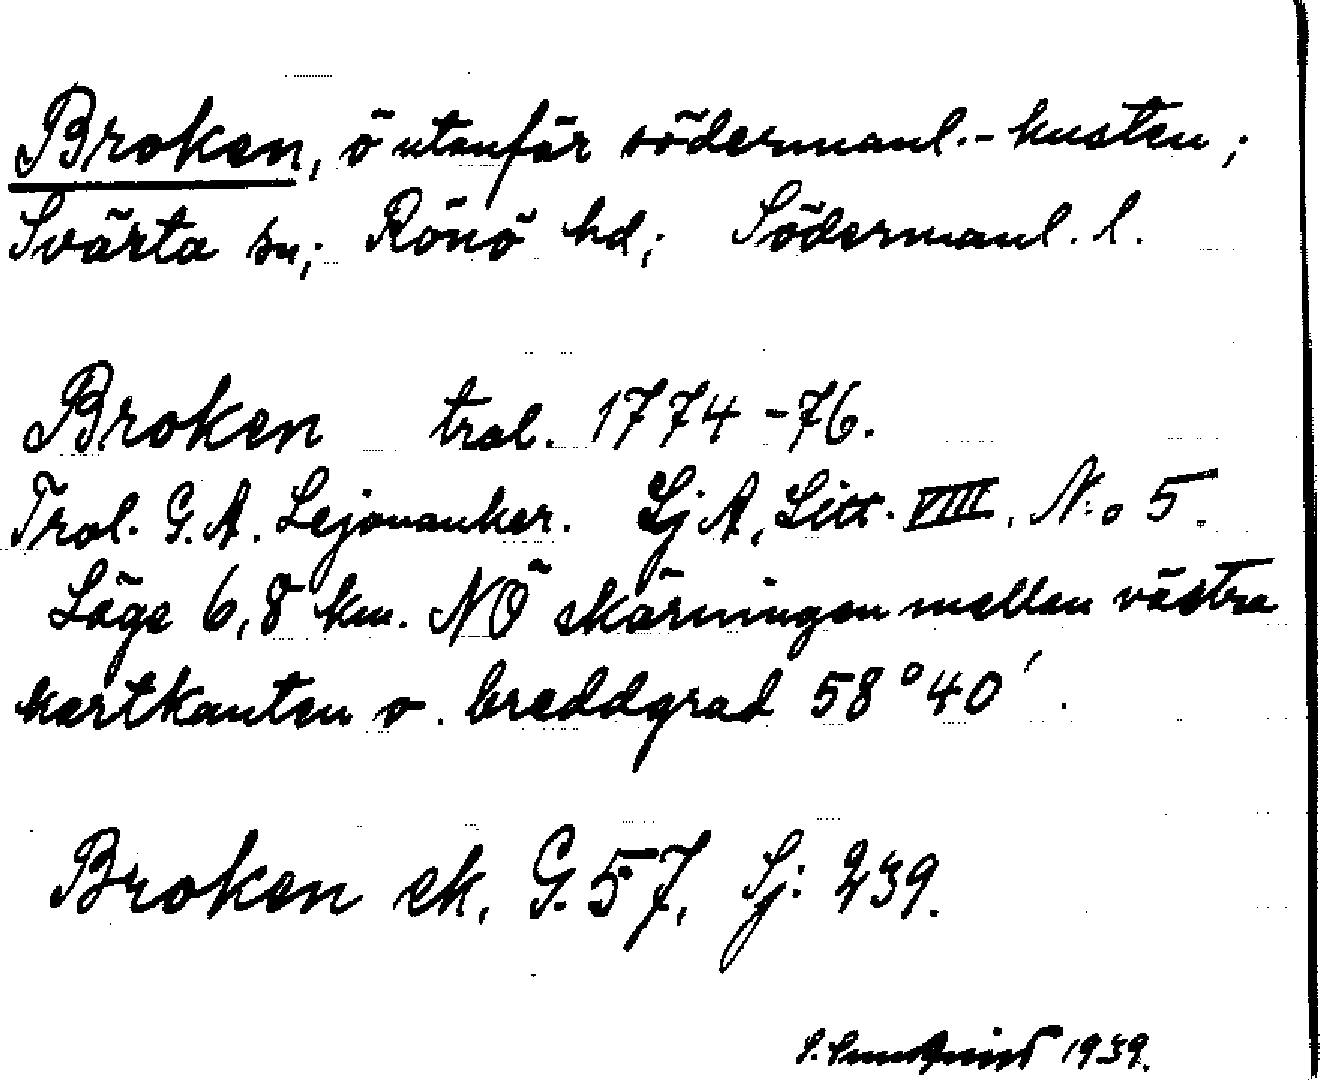 Broken, ö utanför södermanl.-kusten;
Svärta sn; Rönö hd; Södermanl. l.
Broken tral. 1774-76.
Tral. G. A. Lejonanker. Sj A, Litt. VIII. N:o 5.
Läge 6,8 km. NÖ skärningen mellan västra
kartkanten o. breddgrad 58°40′.
Broken ek. G. 57, Sj: 239.
1939.